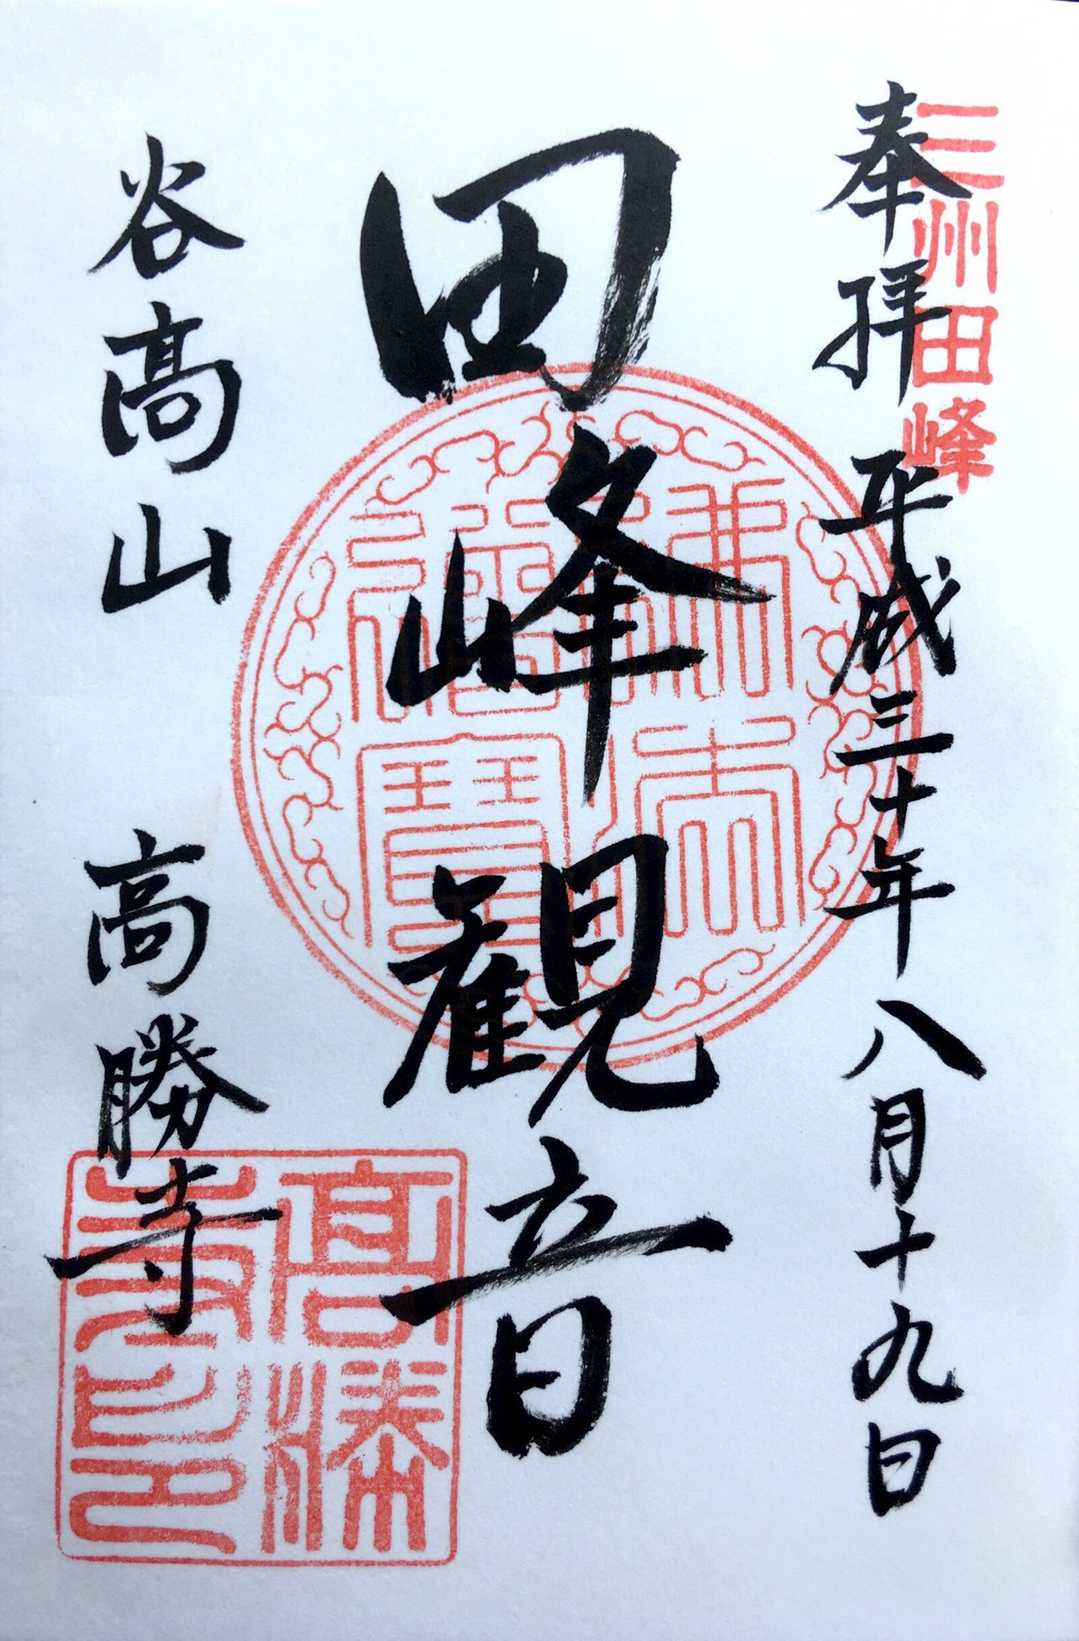 三州田峰
奉拝 平成三十年八月十九日
田峰観音
谷高山 高勝寺
高勝寺印